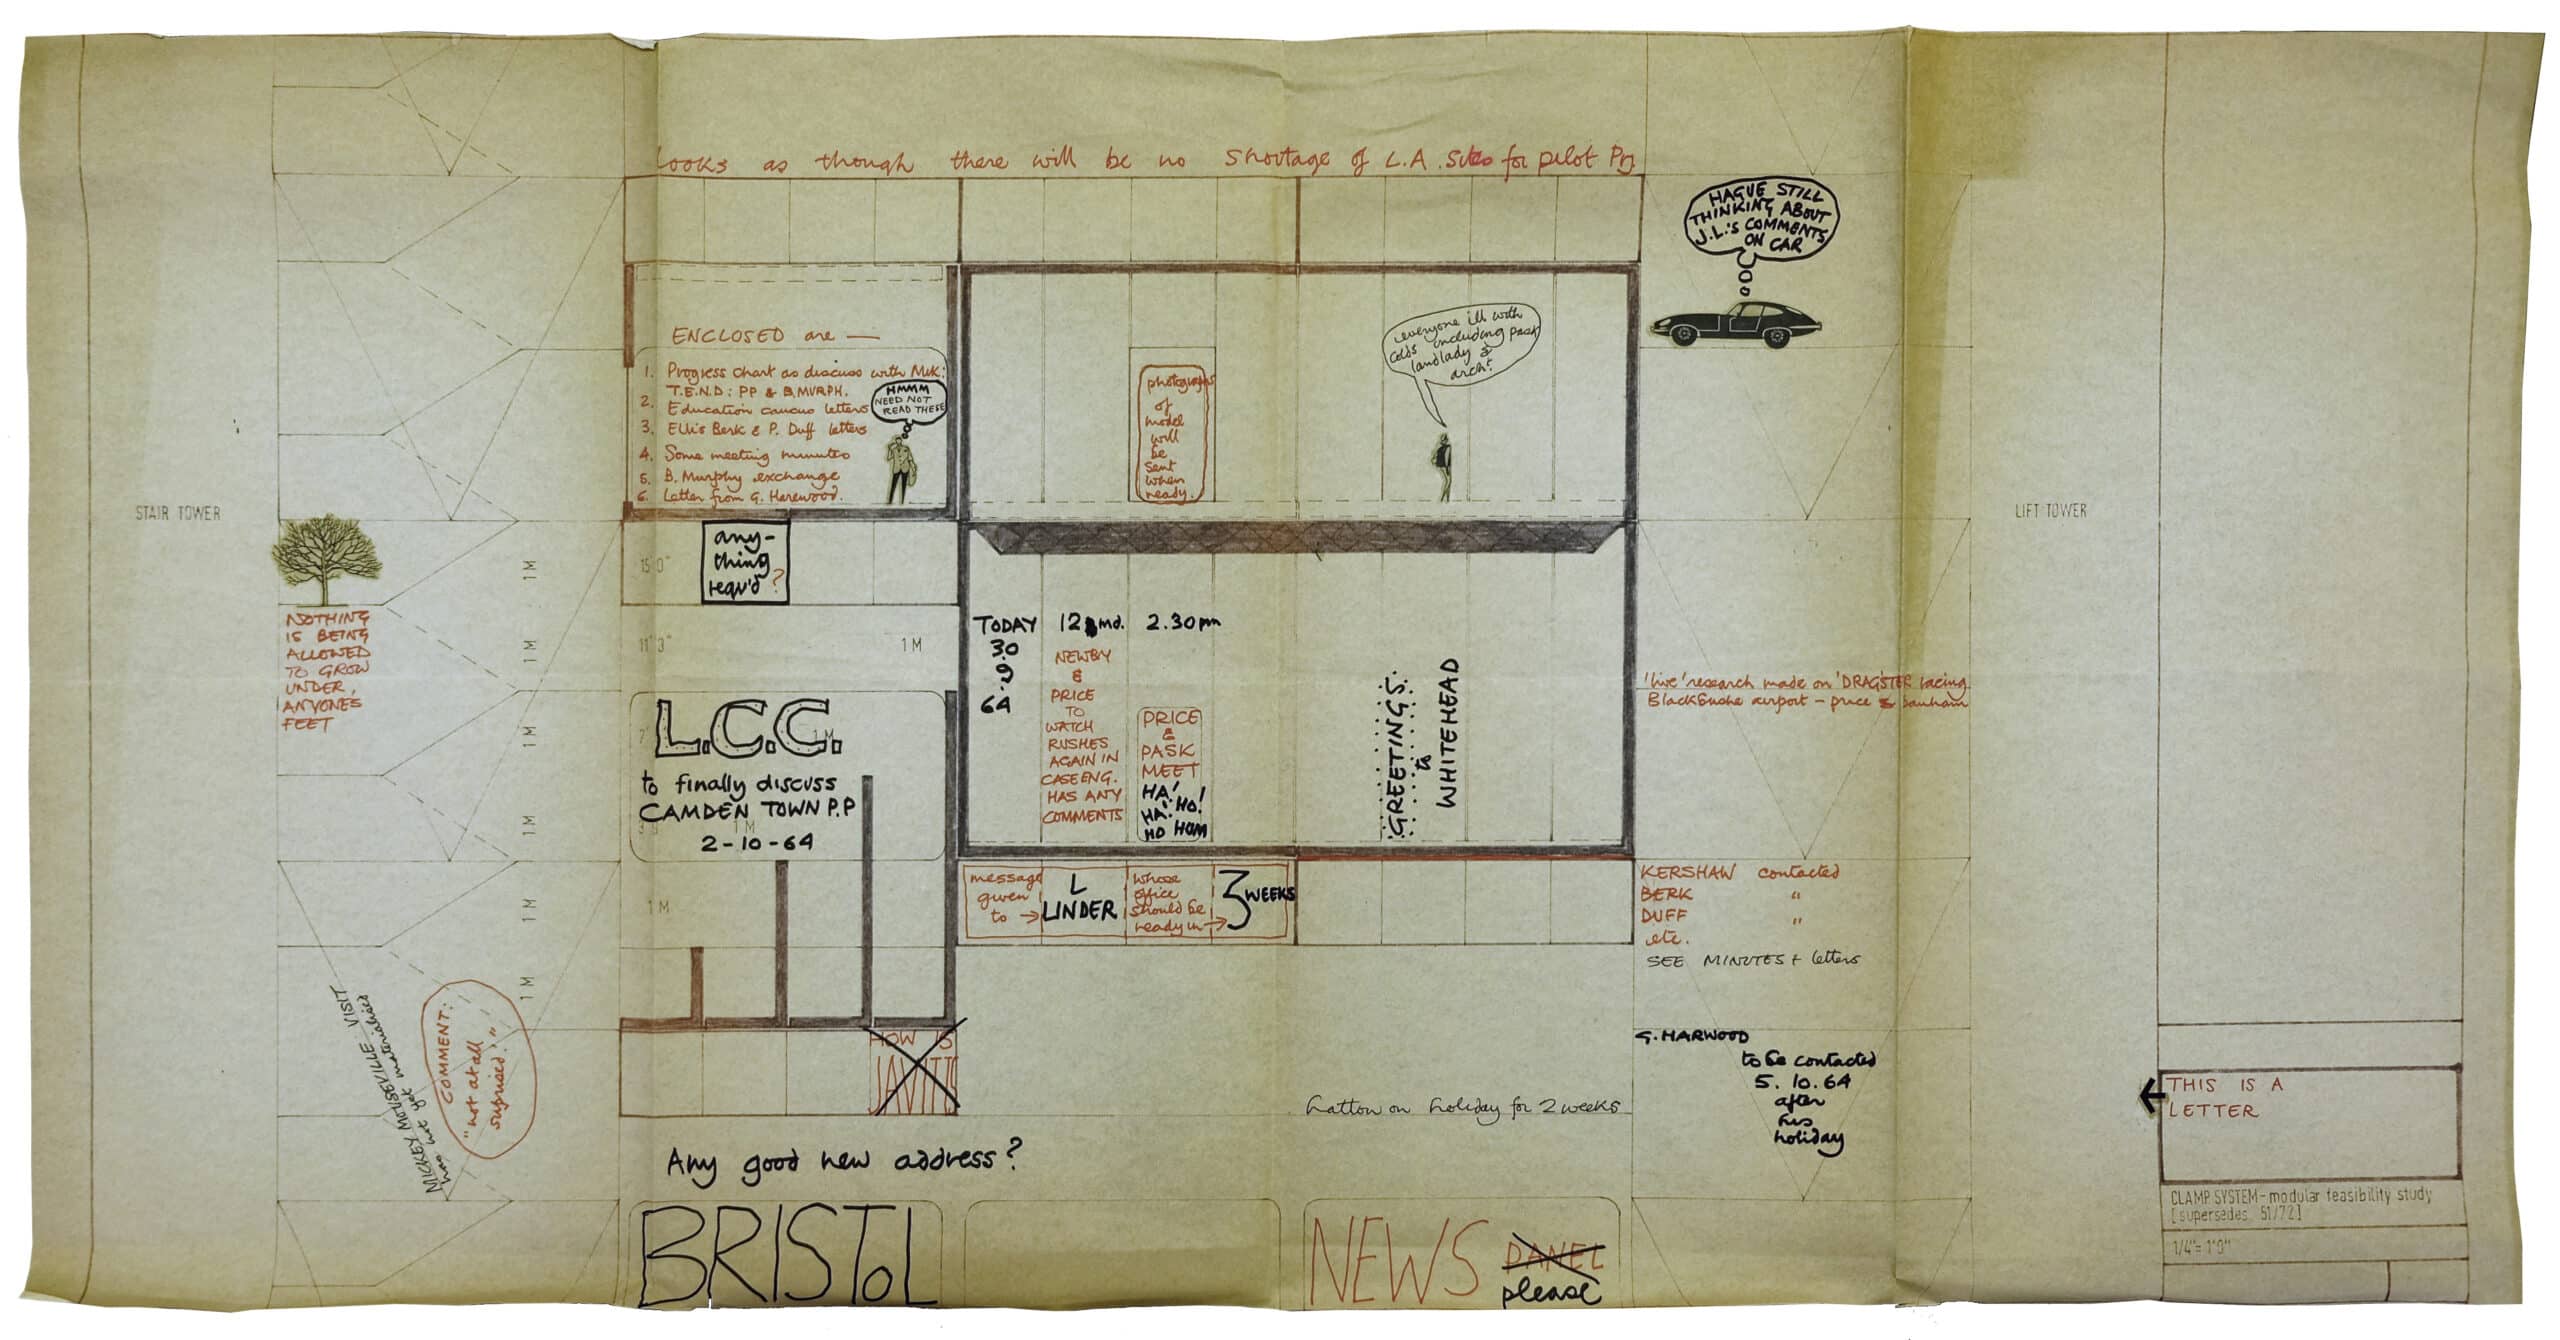 Looks as though there will be no shortage of L.A. sites for pilot Prj
HAGUE STILL
THINKING ABOUT
J.L.'S COMMENTS
ON CAR
ENCLOSED are —
1. Progress chart as discuss with McK:
T.E.N.D: PP & B.MURPH.
2. Education caucus letters
3. Ellis Berk & P. Duff letters
4. Some meeting minutes
5. B. Murphy exchange
6. Letter from G. Harewood.
HMMM
NEED NOT
READ THESE
photographs
of
model
will
be
sent
when
ready.
everyone ill with
colds including pask
landlady &
arch!
STAIR TOWER
LIFT TOWER
NOTHING
IS BEING
ALLOWED
TO GROW
UNDER,
ANYONES
FEET
any-
thing
requ'd?
15'0"
11'3"
1M
1M
1M
1M
1M
1M
1M
1M
1M
1M
L.C.C.
to finally discuss
CAMDEN TOWN P.P
2-10-64
TODAY
30
.9.
64
12 md.
NEWBY
&
PRICE
TO
WATCH
RUSHES
AGAIN IN
CASE ENG.
HAS ANY
COMMENTS
2.30pm
PRICE
&
PASK
MEET
HA!
HO!
HA!
HO HUM
GREETINGS
to
WHITEHEAD
'live' research made on 'DRAGSTER racing
Blackbushe airport - price & banham
message
given
to →
L
LINDER
whose
office
should be
ready in →
3 WEEKS
KERSHAW contacted
BERK "
DUFF "
etc.
SEE MINUTES + letters
G. HARWOOD
to be contacted
5. 10. 64
after
his
holiday
MICKEY MOUSEVILLE VISIT
has not yet materialised
COMMENT:
"not at all
suprised."
HOW IS
JAVITTS
hatton on holiday for 2 weeks
Any good new address?
BRISTOL
NEWS PANEL
please
THIS IS A
LETTER
CLAMP SYSTEM - modular feasibility study
[supersedes 51/72]
1/4"= 1'0"